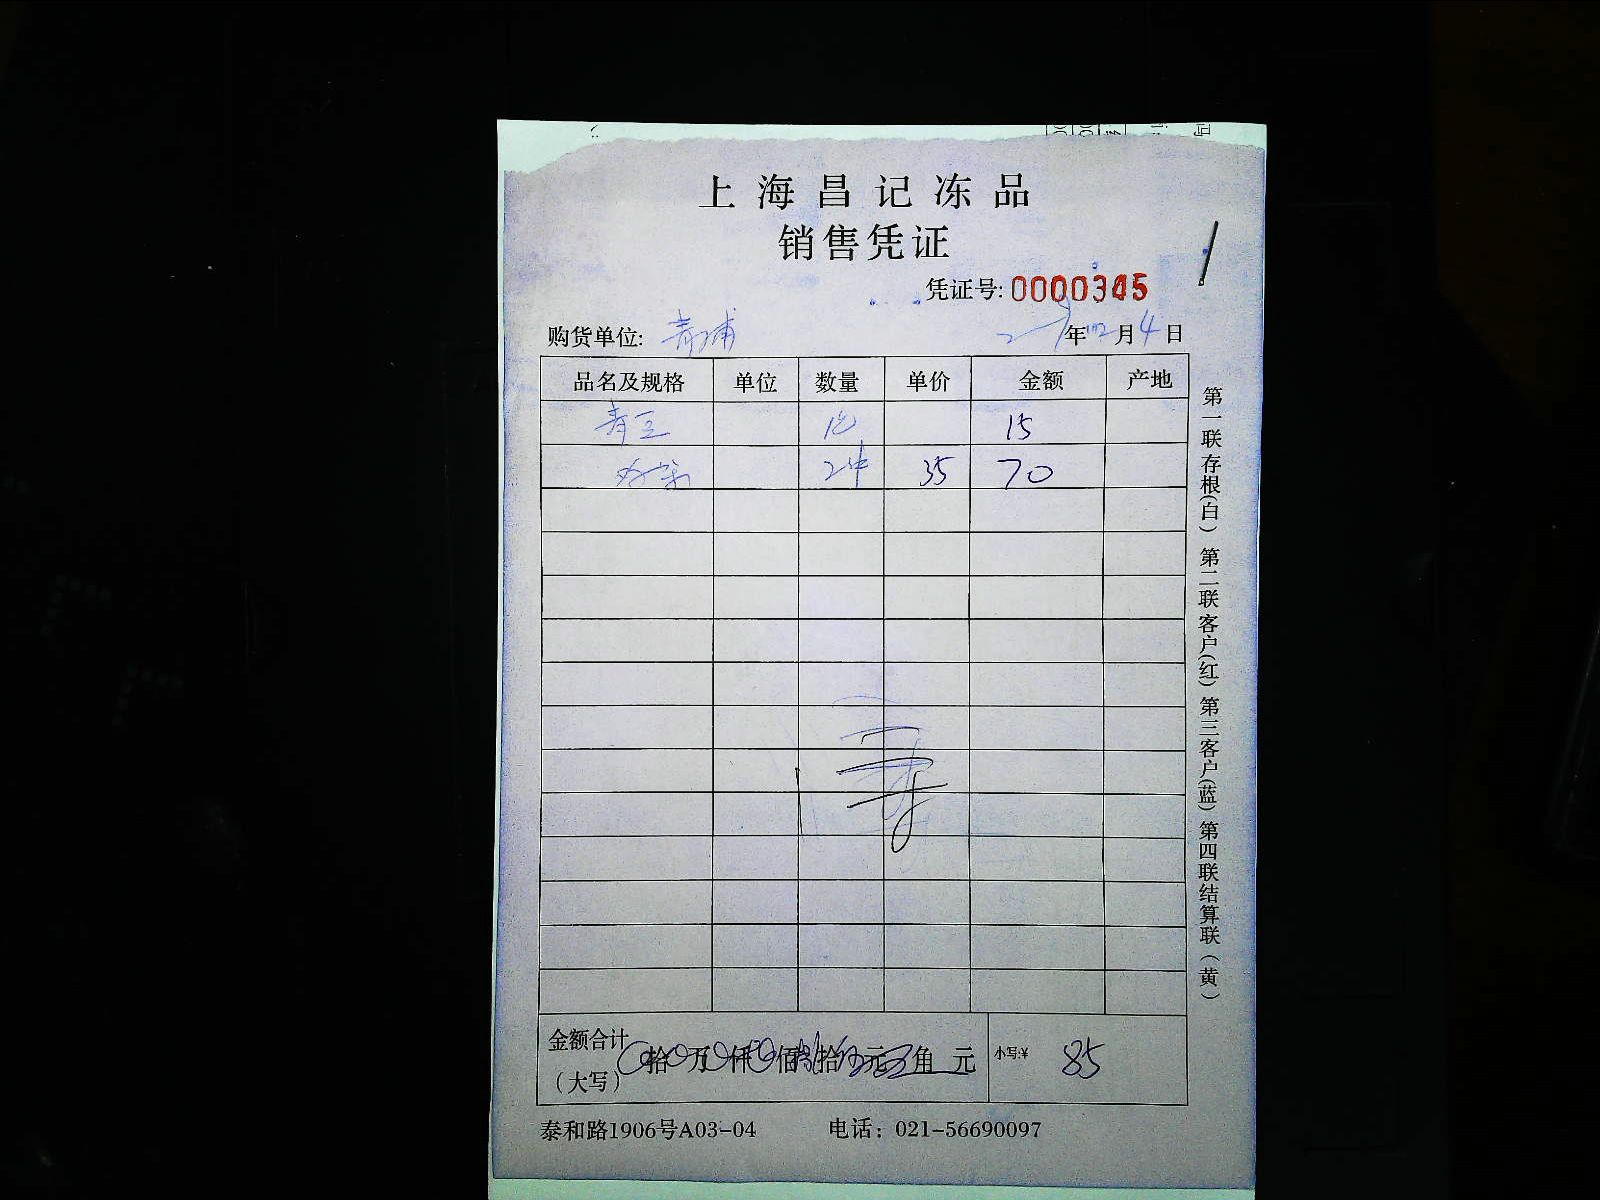 上海昌记冻品
销售凭证
凭证号: 0000345
购货单位: 青浦 年 月 4 日
品名及规格 单位 数量 单价 金额 产地
青豆 15
35 70
金额合计 拾 万 仟 佰 拾 元 角 元 小写:¥ 85
（大写）
泰和路1906号A03-04 电话：021-56690097
第一联存根(白) 第二联客户(红) 第三客户(蓝) 第四联结算联(黄)